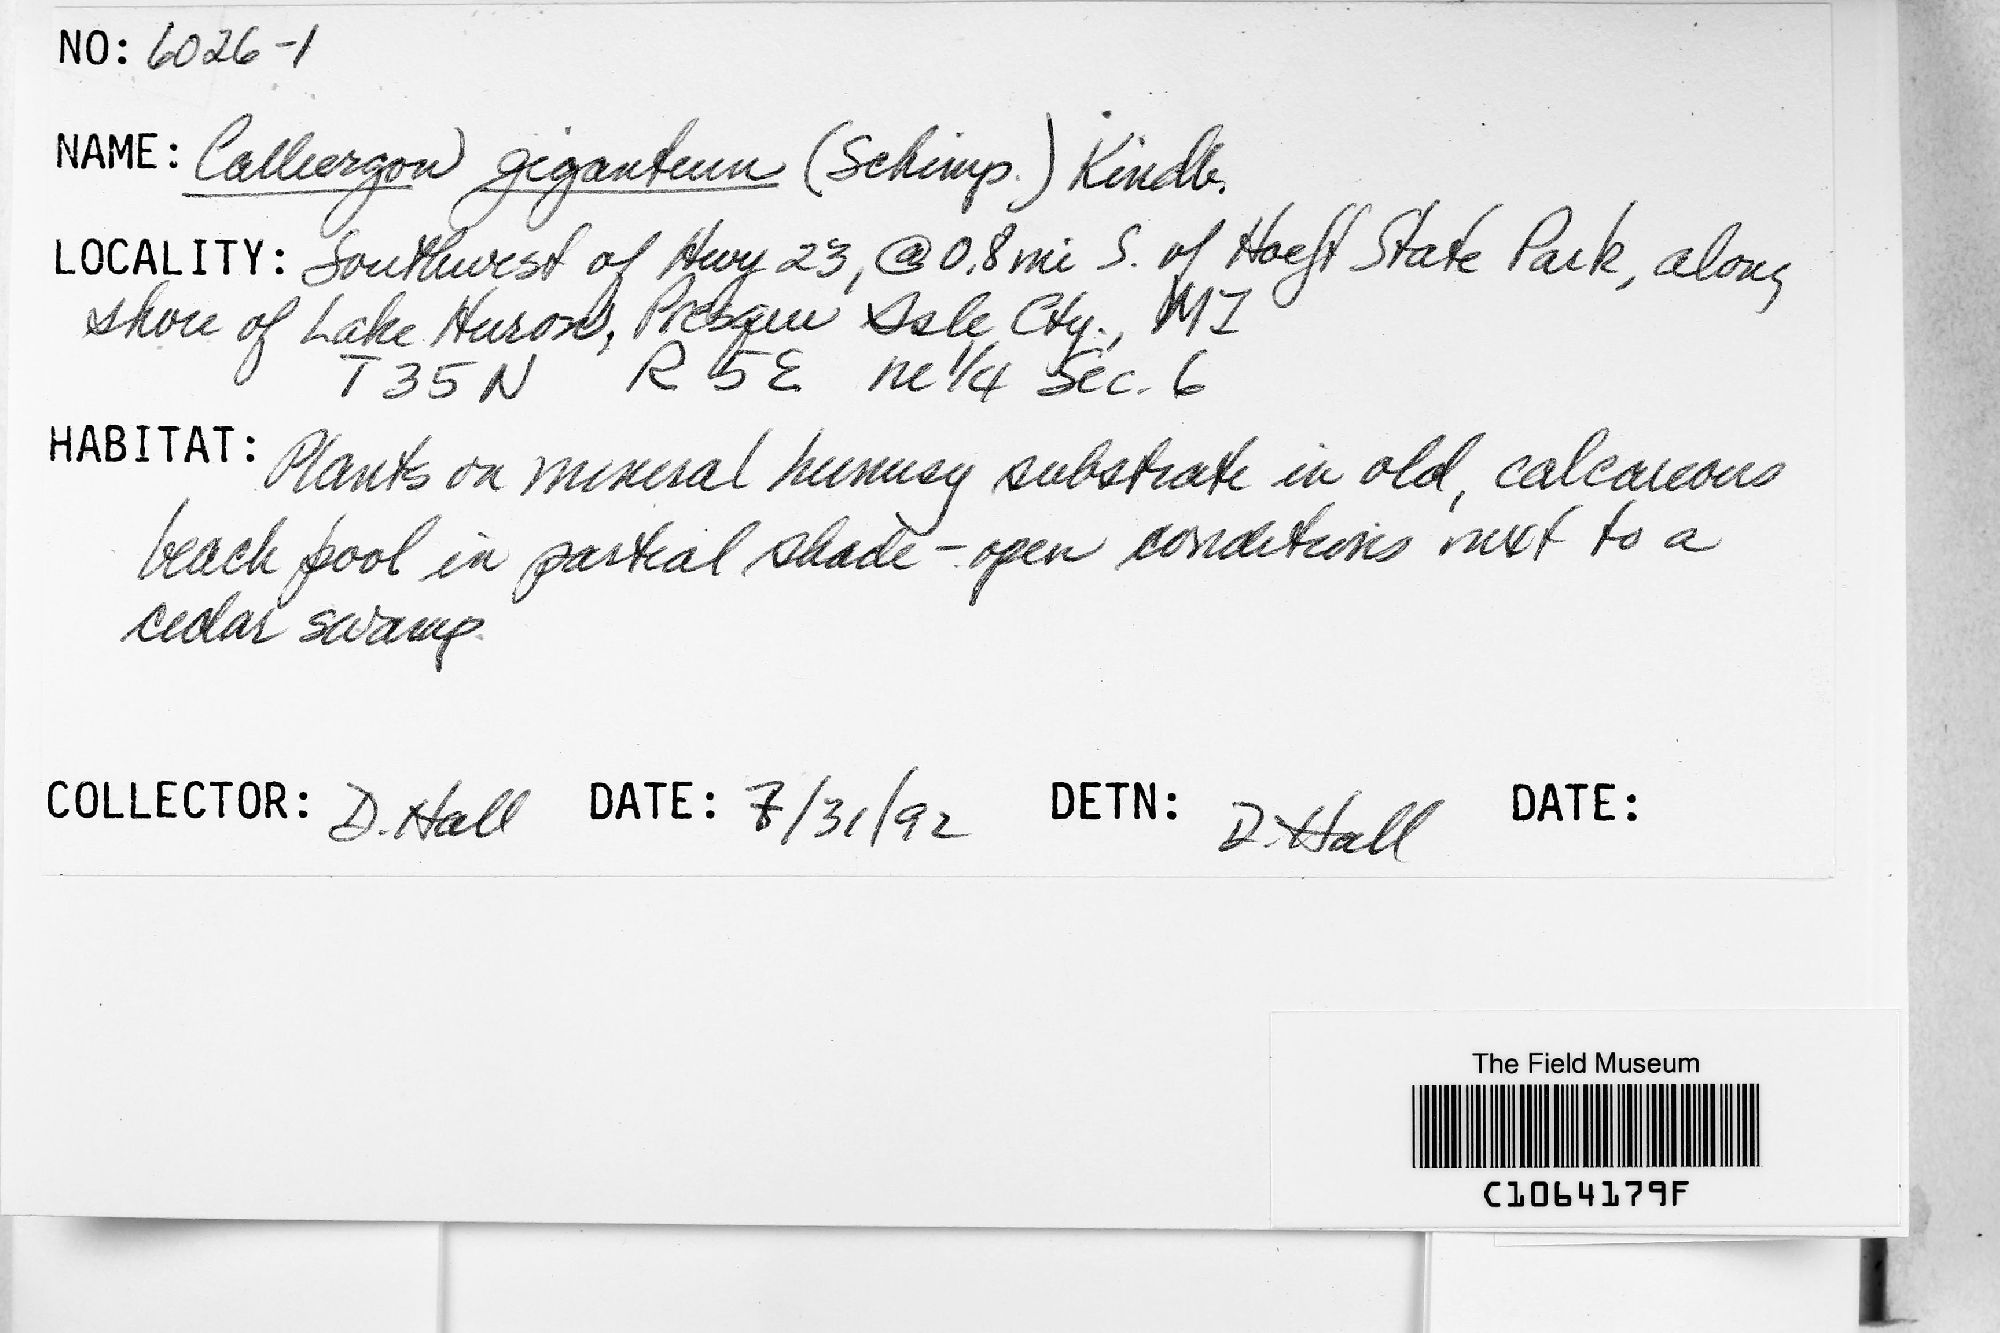 NO: 6026-1
NAME: Calliergon giganteum (Schimp.) Kindb.
LOCALITY: Southwest of Hwy 23, @ 0.8 mi S. of Hoeft State Park, along
shore of Lake Huron, Presque Isle Cty., MI
T35N R5E ne 1/4 Sec. 6
HABITAT: Plants on mineral humusy substrate in old, calcareous
beach pool in partial shade - open conditions next to a
cedar swamp.
COLLECTOR: D. Hall DATE: 7/31/92 DETN: D. Hall DATE:
The Field Museum
C1064179F